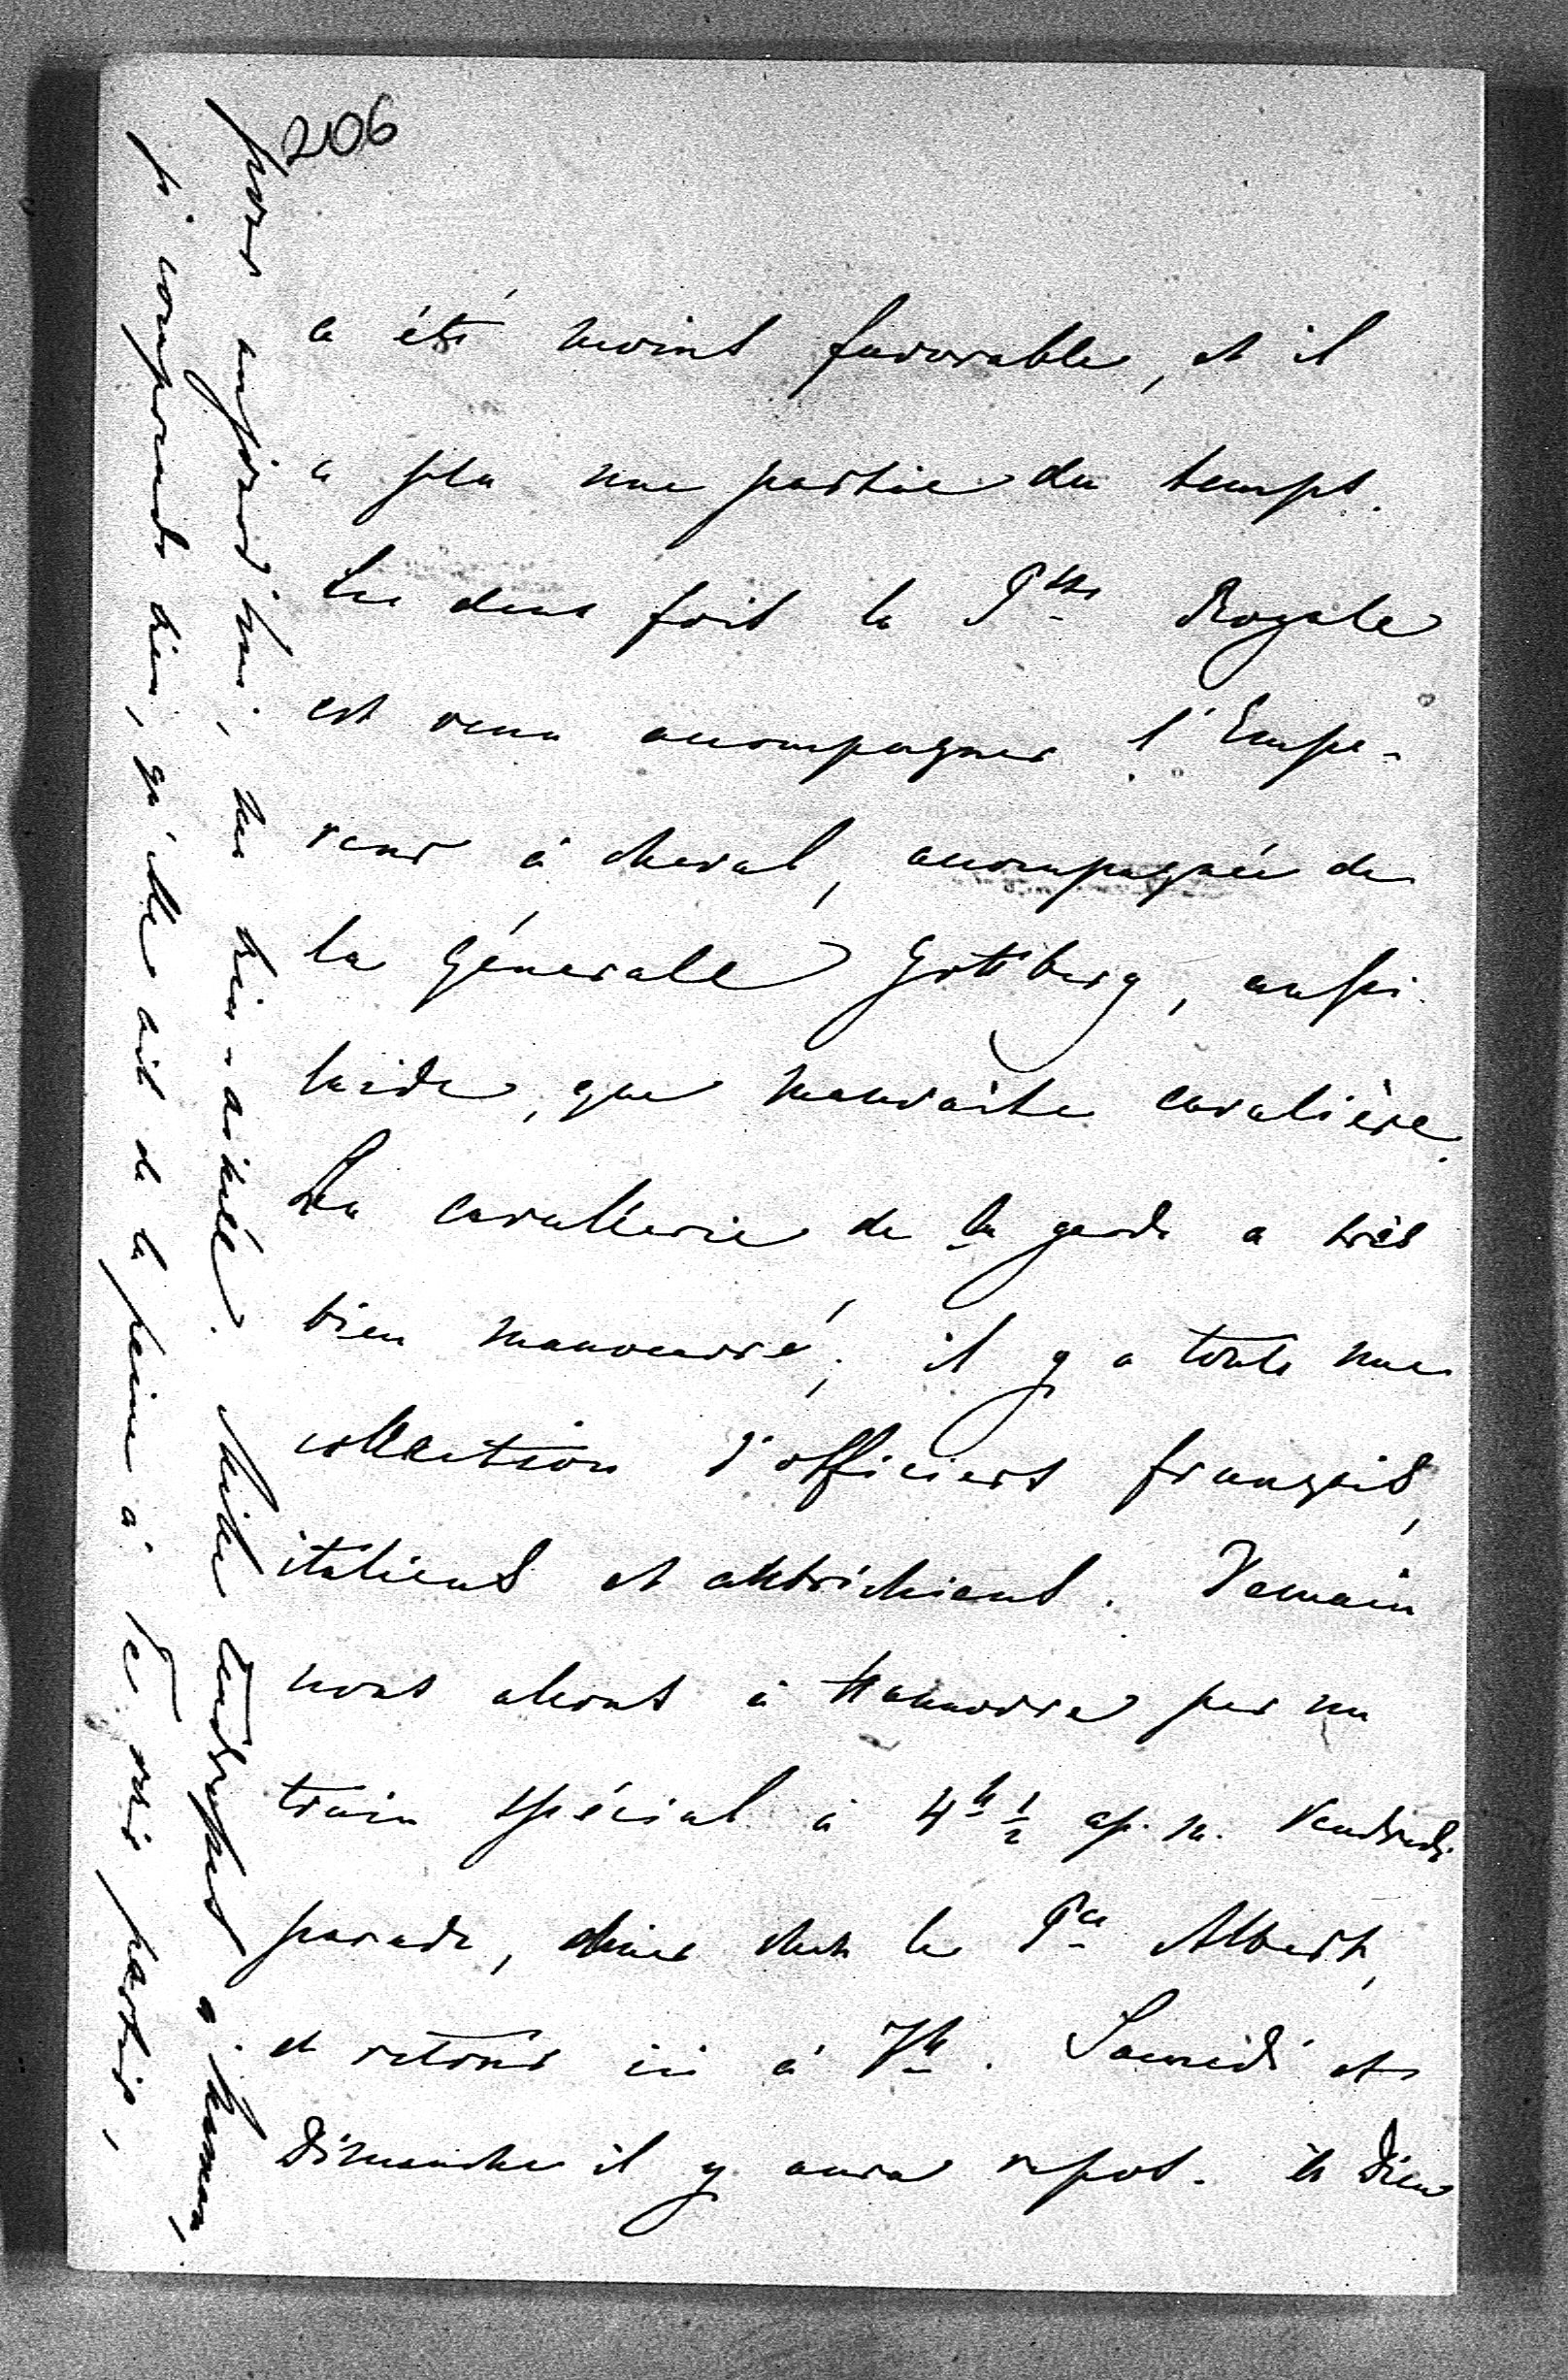 206
a été moins favorable, et il
a plu une partie du temps.
Les deux fois la Psse Royale
est venu accompagner l'Empe-
reur à cheval, accompagnée de
la Générale Gottberg, aussi
laide, que mauvaise cavalière.
La cavallerie de la garde a très
bien manoeuvré; il y a toute une
collection d'officiers français,
italiens et autrichiens. Demain
nous allons à Hannovre par un
train spécial à 4h ½ ap. m. Vendredi
parade, diner chez le Pce Albert,
et retour ici à 7h. Samedi et
Dimanche il y aura repos. à Dieu
pour aujourd'hui, ma bien-aimée. Mille tendresses à maman,
je comprends bien, qu'elle ait de la peine à Te voir partir,